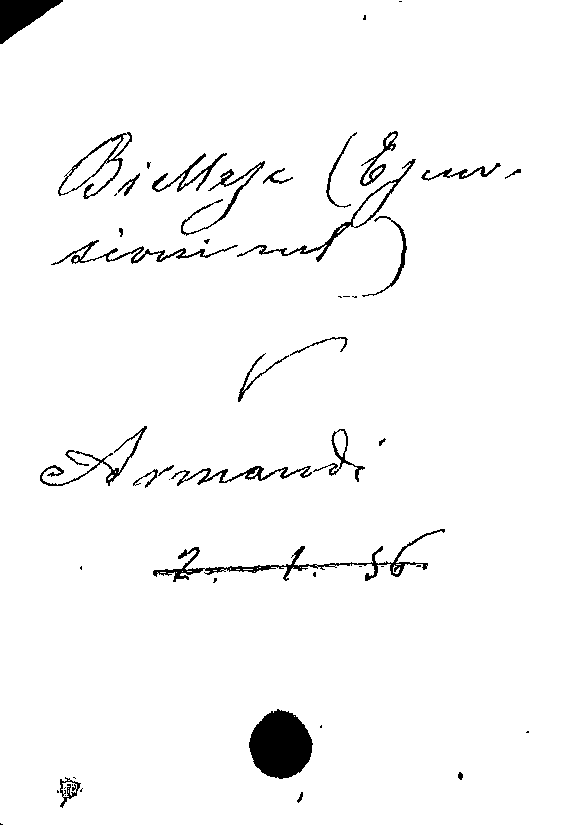 Biellese (Escur-
sioni nel)
V
Armandi
2. 1. 56